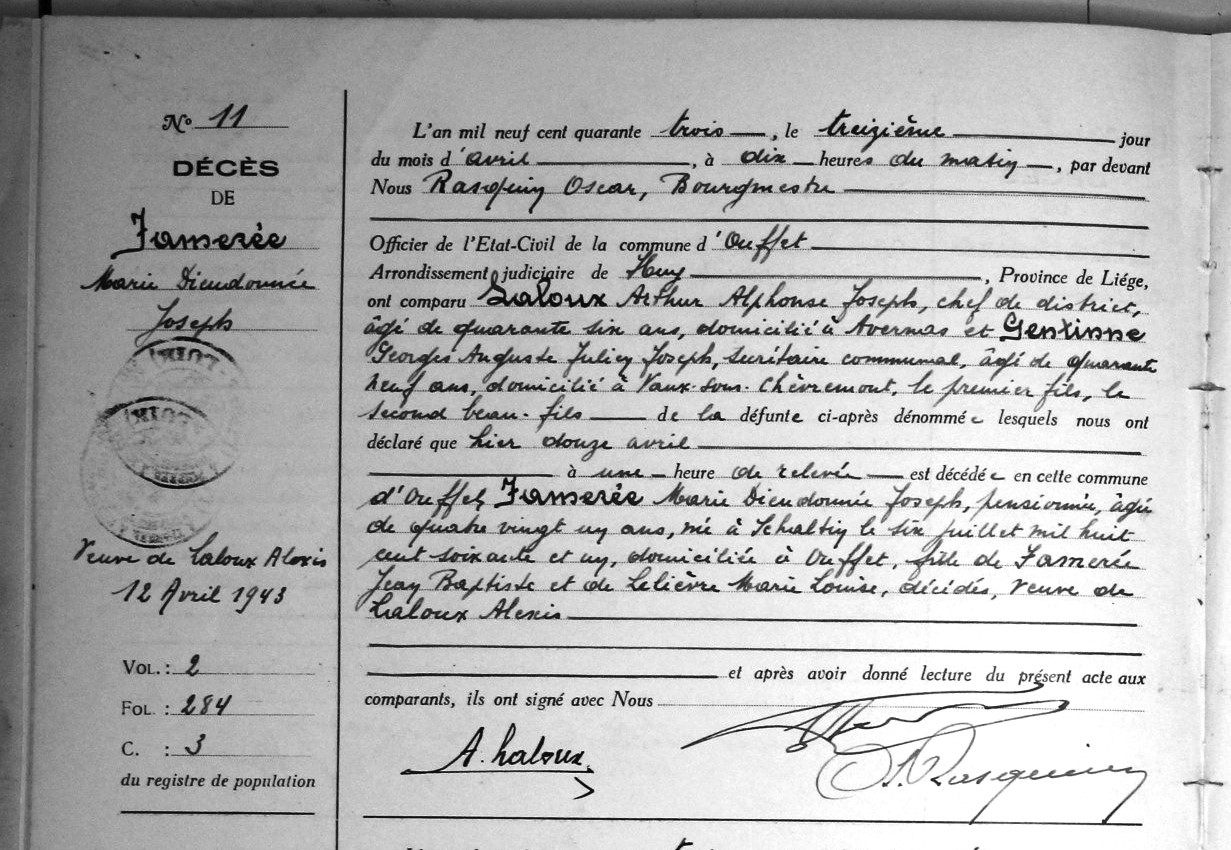 Nº 11
DÉCÈS
DE
Famerée
Marie Dieudonnée
Joseph
Veuve de Laloux Alexis
12 Avril 1943
VOL. : 2
FOL. : 284
C. : 3
du registre de population
L'an mil neuf cent quarante trois, le treizième jour
du mois d'avril, à dix heures du matin, par devant
Nous Rasquin Oscar, Bourgmestre
Officier de l'Etat-Civil de la commune d'Ouffet
Arrondissement judiciaire de Huy, Province de Liége,
ont comparu Laloux Arthur Alphonse Joseph, chef de district,
âgé de quarante six ans, domicilié à Avernas et Gentinne
Georges Auguste Julien Joseph, secrétaire communal, âgé de quarante
neuf ans, domicilié à Vaux-sous-Chèvremont, le premier fils, le
second beau-fils de la défunte ci-après dénommée lesquels nous ont
déclaré que hier douze avril
à une heure de relevée est décédée en cette commune
d'Ouffet, Famerée Marie Dieudonnée Joseph, pensionnée, âgée
de quatre vingt un ans, née à Schaltin le six juillet mil huit
cent soixante et un, domiciliée à Ouffet, fille de Famerée
Jean Baptiste et de Lelièvre Marie Louise, décédés, veuve de
Laloux Alexis
et après avoir donné lecture du présent acte aux
comparants, ils ont signé avec Nous
A. Laloux
O. Rasquin